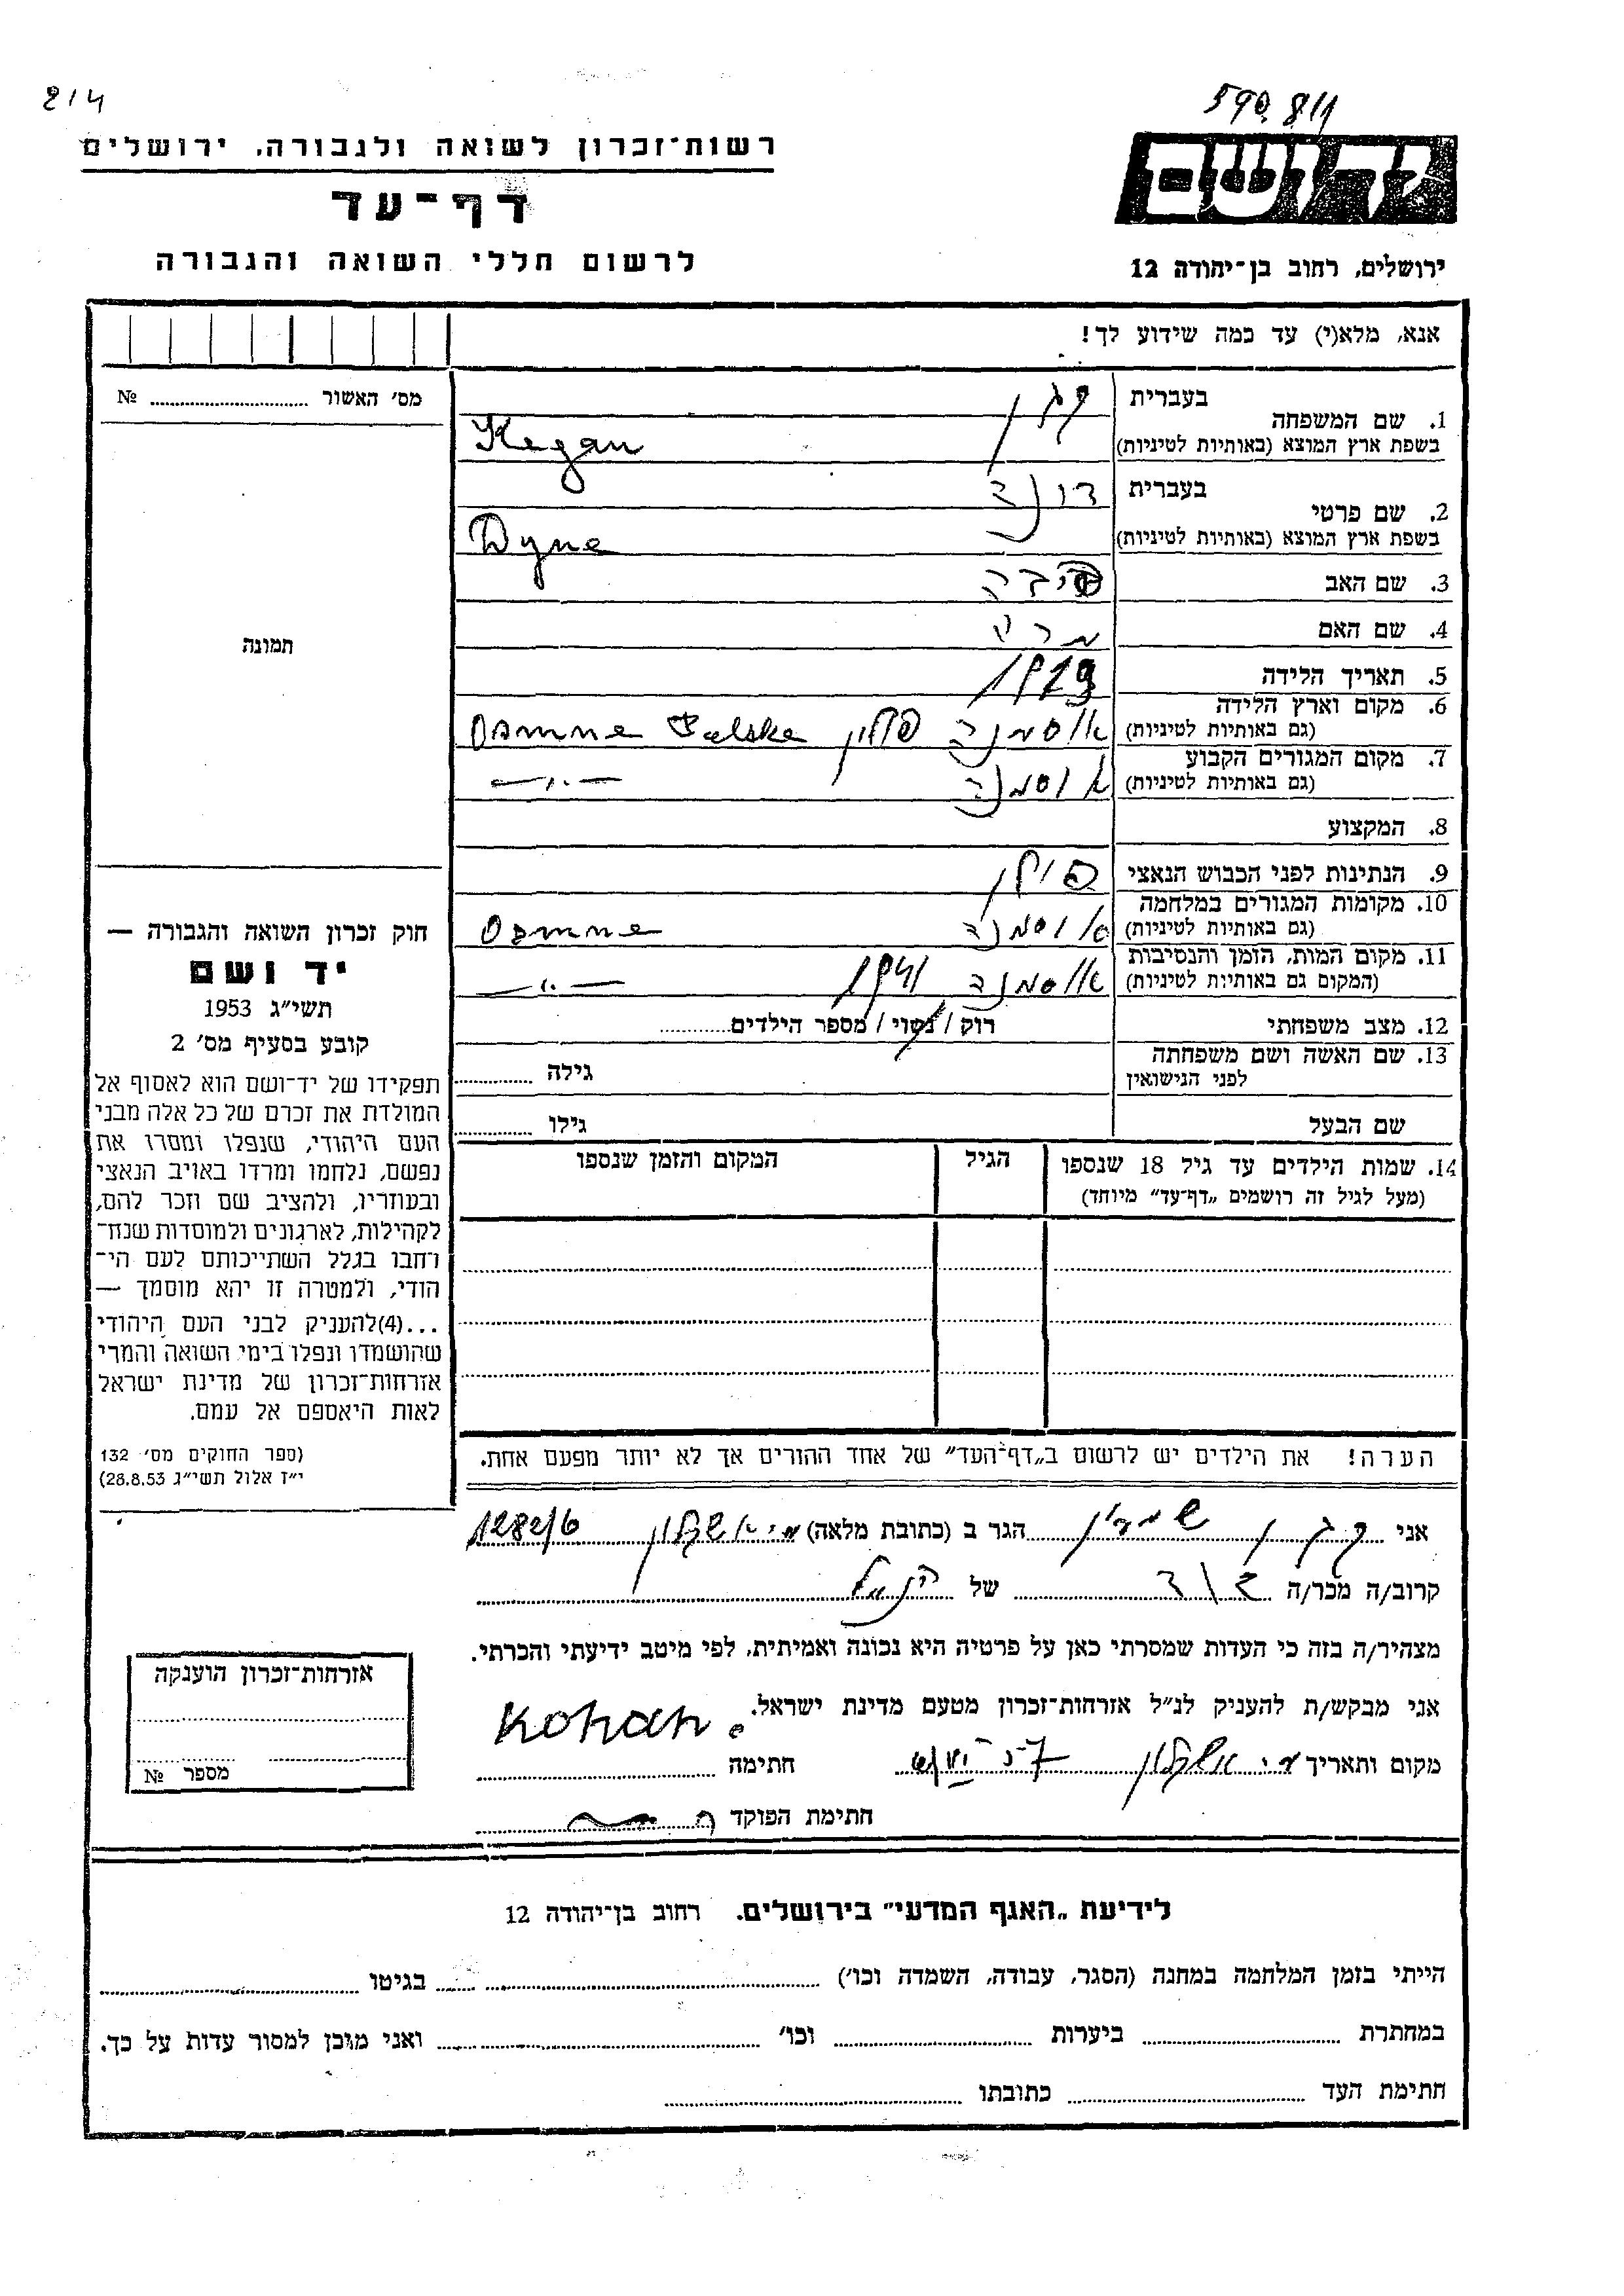 214
590.811
רשות־זכרון לשואה ולגבורה, ירושלים
דף־עד
לרשום חללי השואה והגבורה
יד ושם
ירושלים, רחוב בן־יהודה 12
אנא, מלא(י) עד כמה שידוע לך!
מס׳ האשור № 
1. שם המשפחה
בעברית קגן
בשפת ארץ המוצא (באותיות לטיניות) Kegan
2. שם פרטי
בעברית
בשפת ארץ המוצא (באותיות לטיניות) Dyne
3. שם האב
4. שם האם
5. תאריך הלידה
6. מקום וארץ הלידה
(גם באותיות לטיניות) פולין
7. מקום המגורים הקבוע
(גם באותיות לטיניות) —〃—
8. המקצוע
9. הנתינות לפני הכבוש הנאצי פולין
10. מקומות המגורים במלחמה
(גם באותיות לטיניות)
11. מקום המות, הזמן והנסיבות
(המקום גם באותיות לטיניות) 1941 —〃—
12. מצב משפחתי רוק / נשוי / מספר הילדים
13. שם האשה ושם משפחתה
לפני הנישואין גילה
שם הבעל גילו
14. שמות הילדים עד גיל 18 שנספו הגיל המקום והזמן שנספו
(מעל לגיל זה רושמים „דף־עד״ מיוחד)
הערה! את הילדים יש לרשום ב„דף־העד״ של אחד ההורים אך לא יותר מפעם אחת.
תמונה
חוק זכרון השואה והגבורה —
יד ושם
תשי״ג 1953
קובע בסעיף מס׳ 2
תפקידו של יד־ושם הוא לאסוף אל
המולדת את זכרם של כל אלה מבני
העם היהודי, שנפלו ומסרו את
נפשם, נלחמו ומרדו באויב הנאצי
ובעוזריו, ולהציב שם וזכר להם,
לקהילות, לארגונים ולמוסדות שנח־
רחבו בגלל השתייכותם לעם הי־
הודי, ולמטרה זו יהא מוסמך —
...(4)להעניק לבני העם היהודי
שהושמדו ונפלו בימי השואה והמרי
אזרחות־זכרון של מדינת ישראל
לאות היאספם אל עמם.
(ספר החוקים מס׳ 132
י״ז אלול תשי״ג 28.8.53)
אני קגן הגר ב (כתובת מלאה) 1282/6
קרוב/ה מכר/ה של
מצהיר/ה בזה כי העדות שמסרתי כאן על פרטיה היא נכונה ואמיתית, לפי מיטב ידיעתי והכרתי.
אני מבקש/ת להעניק לנ״ל אזרחות־זכרון מטעם מדינת ישראל.
מקום ותאריך חתימה
חתימת הפוקד
אזרחות־זכרון הוענקה
מספר №
לידיעת „האגף המדעי״ בירושלים. רחוב בן־יהודה 12
הייתי בזמן המלחמה במחנה (הסגר, עבודה, השמדה וכו׳) בגיטו
במחתרת ביערות וכו׳ ואני מוכן למסור עדות על כך.
חתימת העד כתובתו